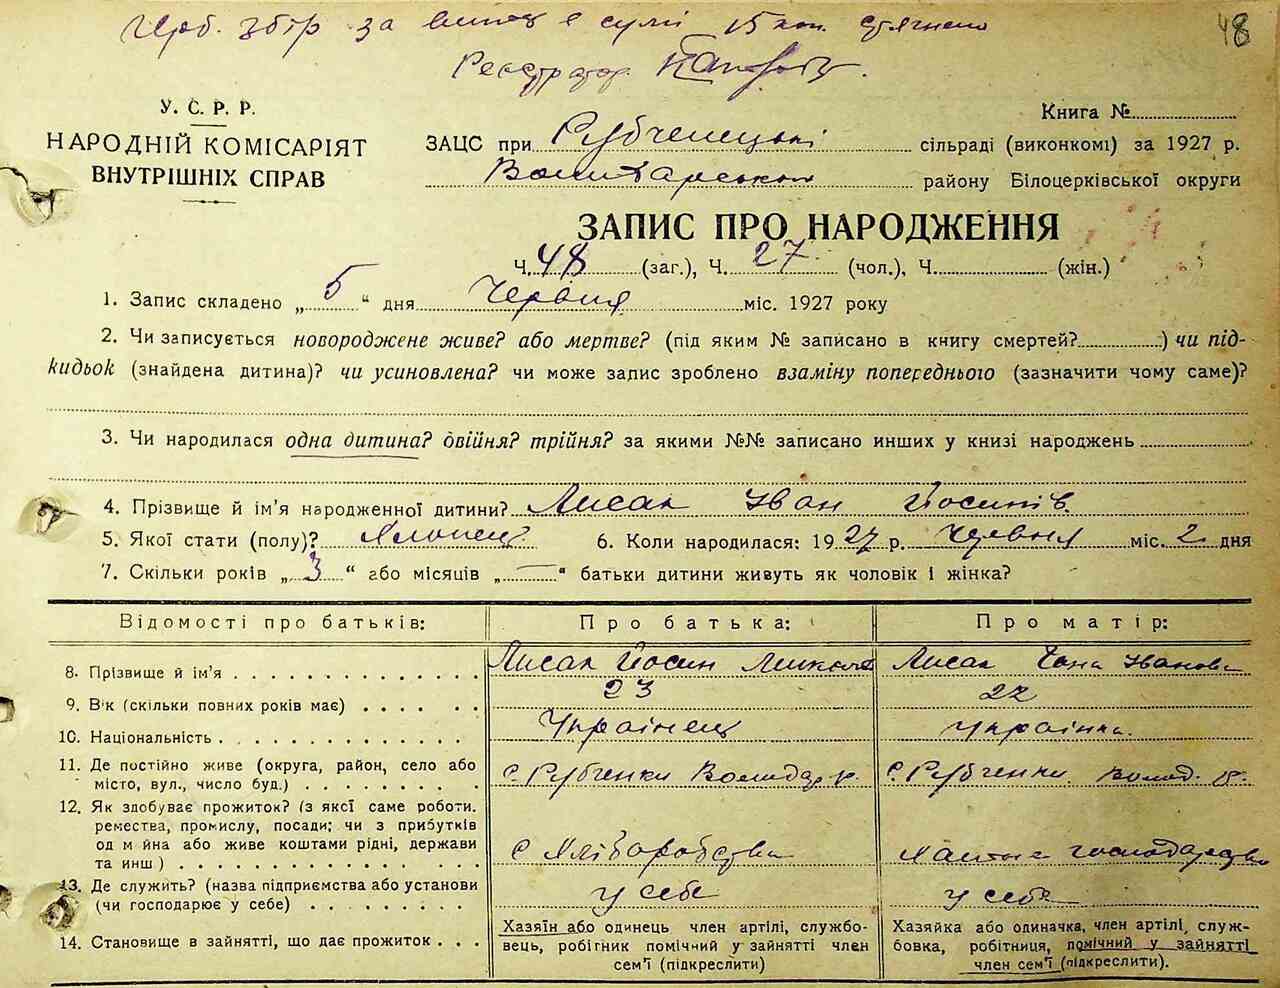 Герб. збір за витяг в сумі 15 коп. стягнено
48
Реєстратор
У. С. Р. Р.
НАРОДНІЙ КОМІСАРІЯТ
ВНУТРІШНІХ СПРАВ
Книга №
ЗАЦС при Рубченецькі сільраді (виконкомі) за 1927 р.
Володарськом району Білоцерківської округи
ЗАПИС ПРО НАРОДЖЕННЯ
Ч. 48 (заг.), Ч. 27 (чол.), Ч. (жін.)
1. Запис складено „ 5 “ дня Червня міс. 1927 року
2. Чи записується новороджене живе? або мертве? (під яким № записано в книгу смертей? ) чи під-
кидьок (знайдена дитина)? чи усиновлена? чи може запис зроблено взаміну попереднього (зазначити чому саме)?
3. Чи народилася одна дитина? двійня? трійня? за якими №№ записано инших у книзі народжень
4. Прізвище й ім'я народженної дитини? Лисак Іван Йосипів.
5. Якої стати (полу)? Хлопець 6. Коли народилася: 1927 р. Червня міс. 2 дня
7. Скільки років „ 3 “ або місяців „ — “ батьки дитини живуть як чоловік і жінка?
Відомості про батьків: Про батька: Про матір:
8. Прізвище й ім'я Лисак Йосип Лисак Ганна Іванова
9. Вік (скільки повних років має) 23 22
10. Національність Українець Українка.
11. Де постійно живе (округа, район, село або
місто, вул., число буд.) с. Рубченки Володар. р. с. Рубченки Волод. р.
12. Як здобуває прожиток? (з якої саме роботи.
ремества, промислу, посади; чи з прибутків
од майна або живе коштами рідні, держави
та инш) с Хліборобства Хатньє господарство
13. Де служить? (назва підприємства або установи
(чи господарює у себе) у себе у себе
14. Становище в зайнятті, що дає прожиток
Хазяїн або одинець член артілі, службо-
вець, робітник помічний у зайнятті член
сем'ї (підкреслити)
Хазяйка або одиначка, член артілі, служ-
бовка, робітниця, помічний у зайнятті
член сем'ї (підкреслити).